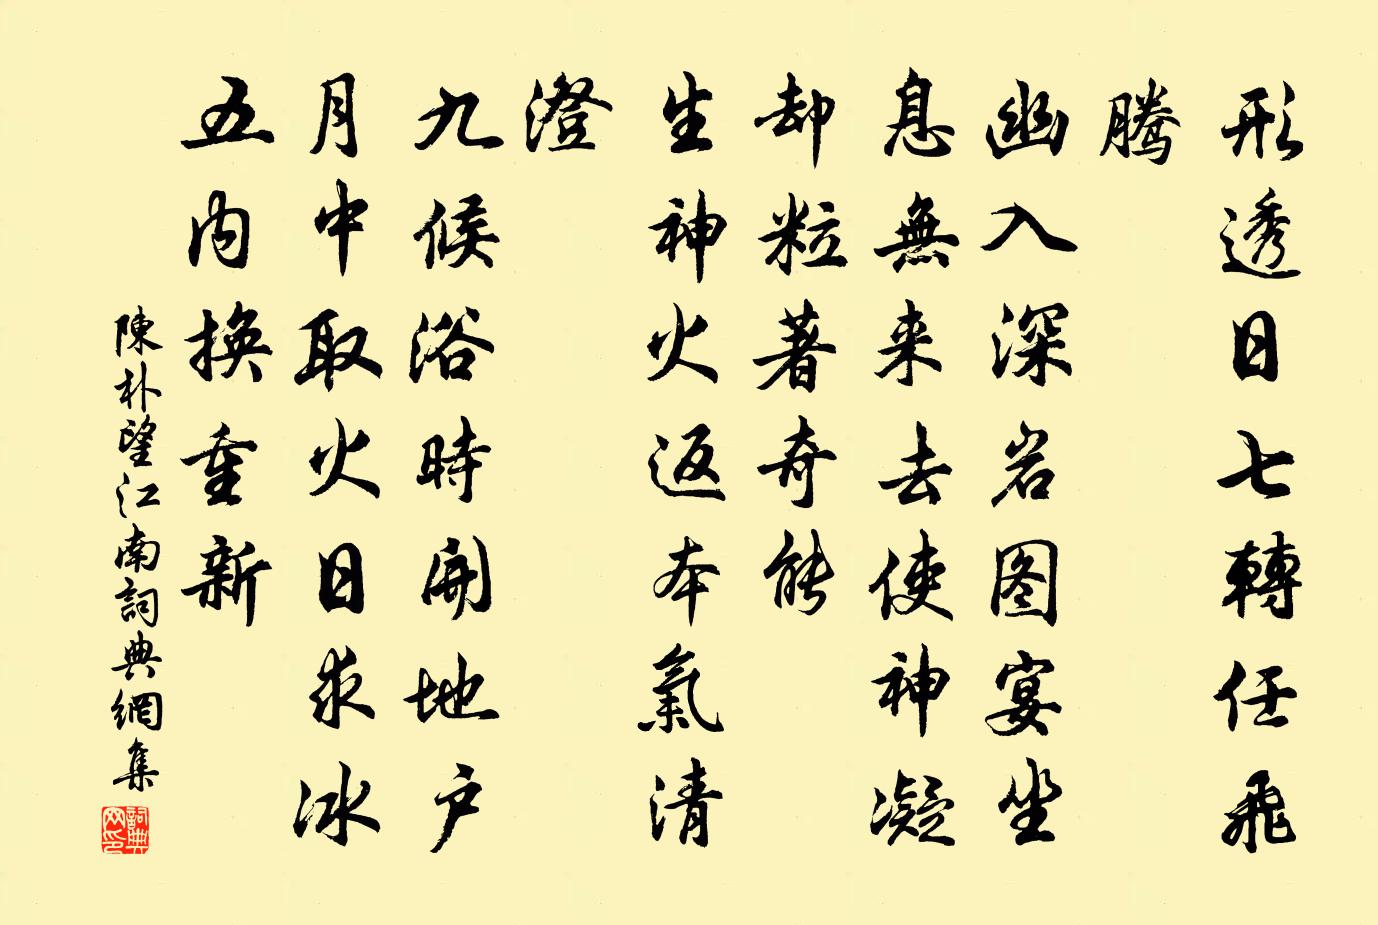 形透日七轉任飛
騰
幽入深岩图宴坐
息無来去使神凝
却粒著奇能
生神火返本氣清
澄
九候浴時開地户
月中取火日求冰
五内換重新
陳朴望江南詞典網集
詞典網印